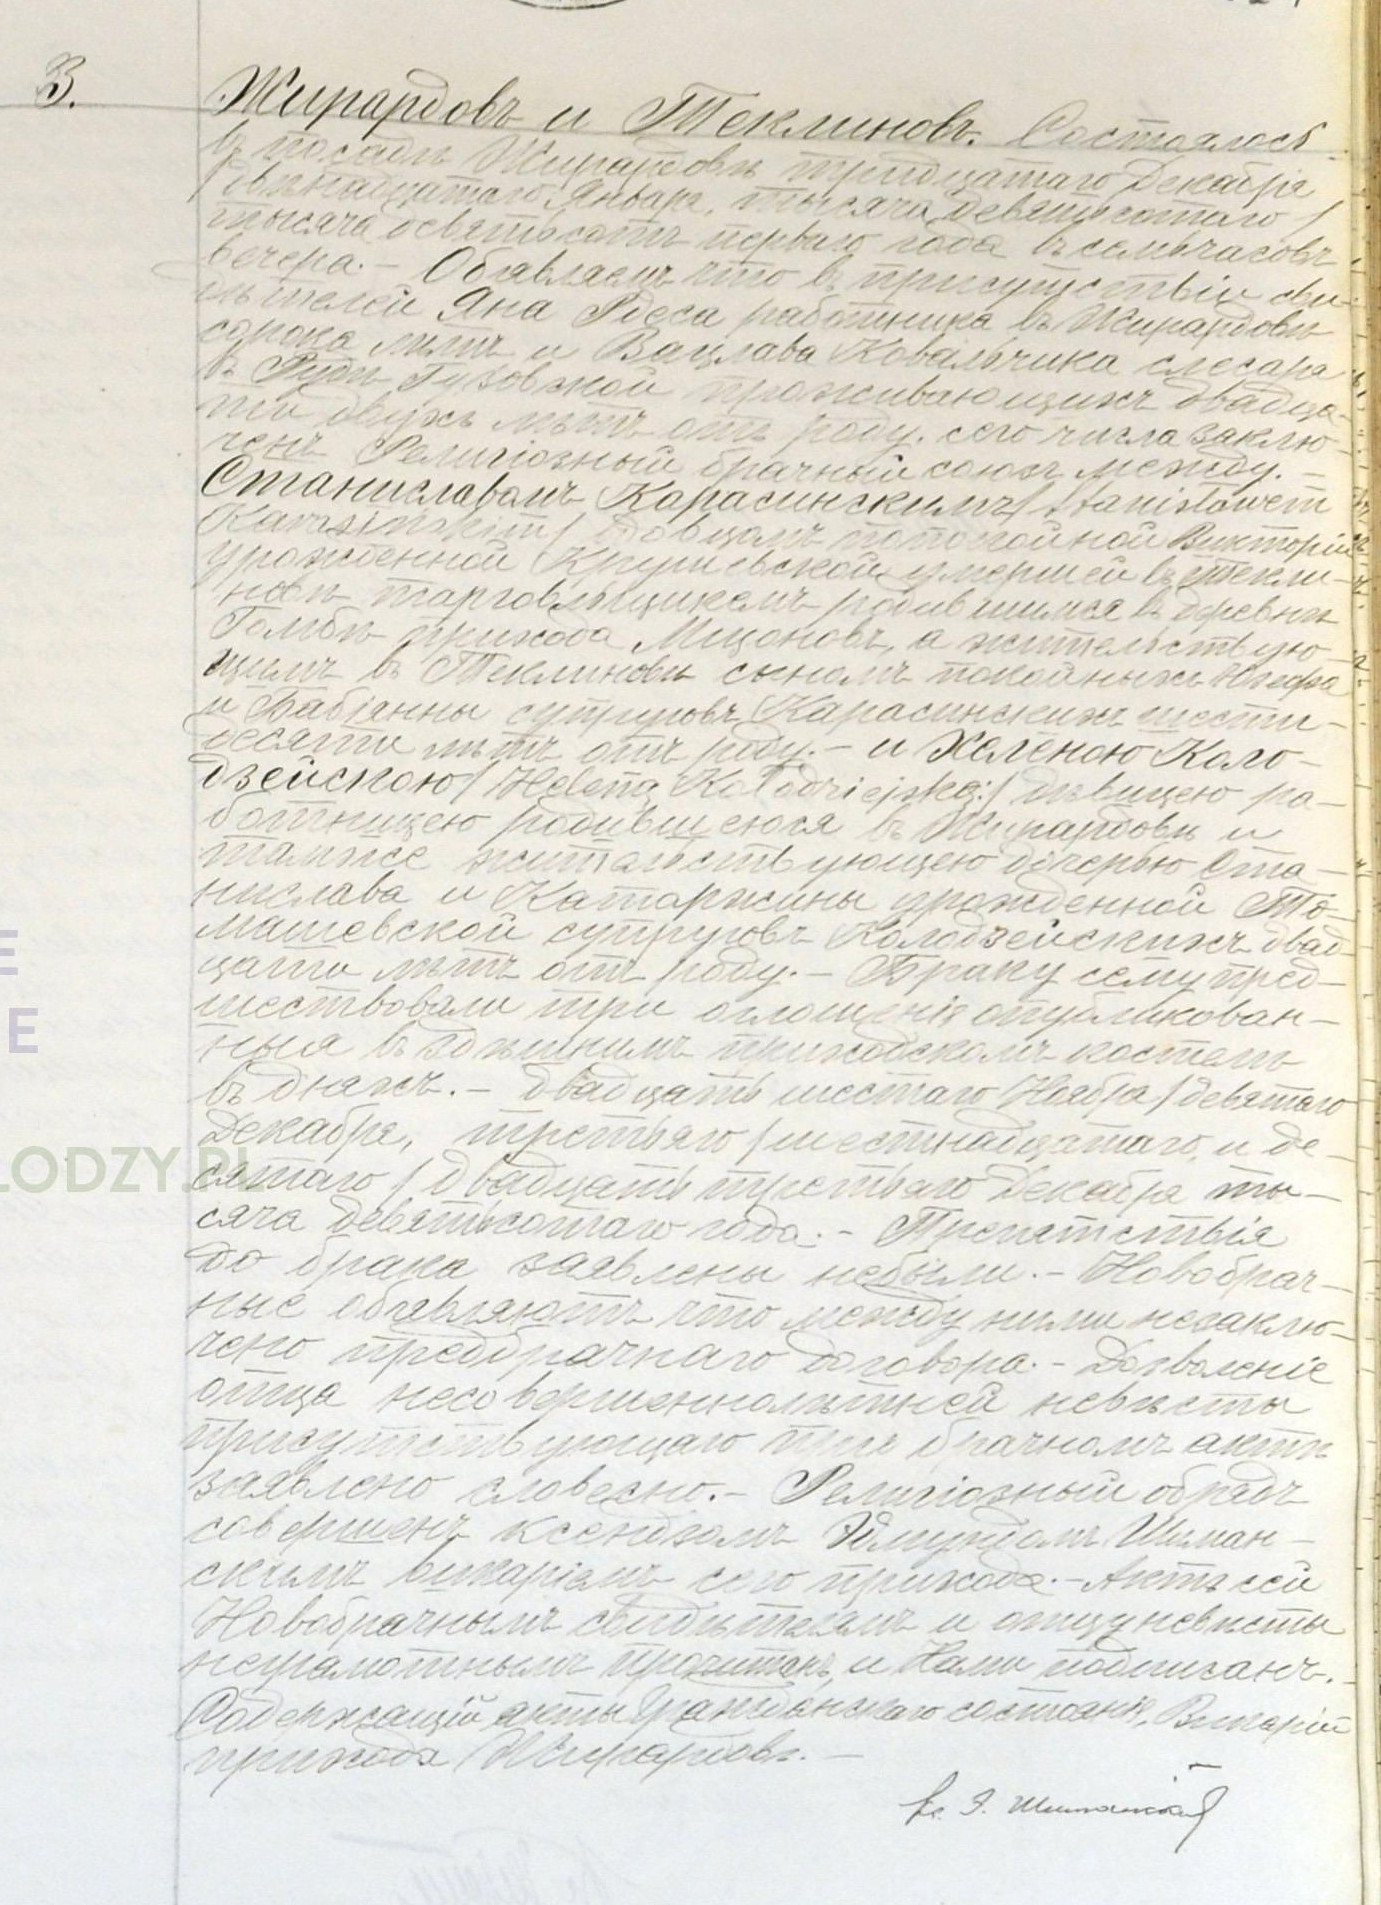 3.
Жирардовъ и Теклиновъ. Состоялось
въ посадѣ Жирардовѣ тридцатаго Декабря
/двѣнадцатаго Января, тысяча девятьсотаго /
тысяча девятьсотъ перваго года въ семь часовъ
вечера. – Объявляемъ что въ присутствіи сви-
дѣтелей Яна Рдеса работника въ Жирардовѣ
сорока лѣтъ и Вацлава Ковальчика слесаря
въ Рудѣ Гузовской проживающихъ двадца-
ти двухъ лѣтъ отъ роду. сего числа заклю-
ченъ Религіозный брачный союзъ между. –
Станиславомъ Карасинскимъ /Stanisławem
Karasińskim/ вдовцомъ по покойной Викторіи
урожденной Крушевской умершей въ Текли-
новѣ торговльщикемъ родившимся въ деревни
прихода Мщоновъ, а жительствую-
щимъ въ Теклиновѣ сыномъ покойныхъ Юзефа
и Фабіанны супруговъ Карасинскихъ шести-
десяти лѣтъ отъ роду. – и Хеленою Коло-
дзейскою /Heleną Kołodziejską:/ дѣвицею ра-
ботницею родившеюся въ Жирардовѣ и
тамже жительствующею дочерью Ста-
нислава и Катаржины урожденной То-
машевской супруговъ Колодзейскихъ двад-
цати лѣтъ отъ роду. – Браку сему пред-
шествовали три оглошенія опубликован-
ныя въ здѣшнимъ приходскомъ костелѣ
въ дняхъ. – двадцать шестаго Ноября /девятаго
Декабря, третьяго /шестнадцатаго, и де-
сятаго /двадцать третьяго Декабря ты-
сяча девятьсотаго года. – Препятствія
до брака заявлены небыли. – Новобрач-
ные объявляютъ что между ними незаклю-
чено предбрачнаго договора. – Дозволеніе
отца несовершеннолѣтней невѣсты
присутствующаго при брачномъ актѣ
заявлено словесно. – Религіозный обрядъ
совершенъ ксендзомъ Эдмундомъ Шиман-
скимъ викаріемъ сего прихода. – Актъ сей
Новобрачнымъ свидѣтелямъ и отцу невѣсты
неграмотнымъ прочитанъ, и Нами подписанъ. –
Содержащій акты Гражданскаго состоянія, Викарій
прихода Жирардовъ. –
Кс. Э. Шиманскій
LODZY.PL